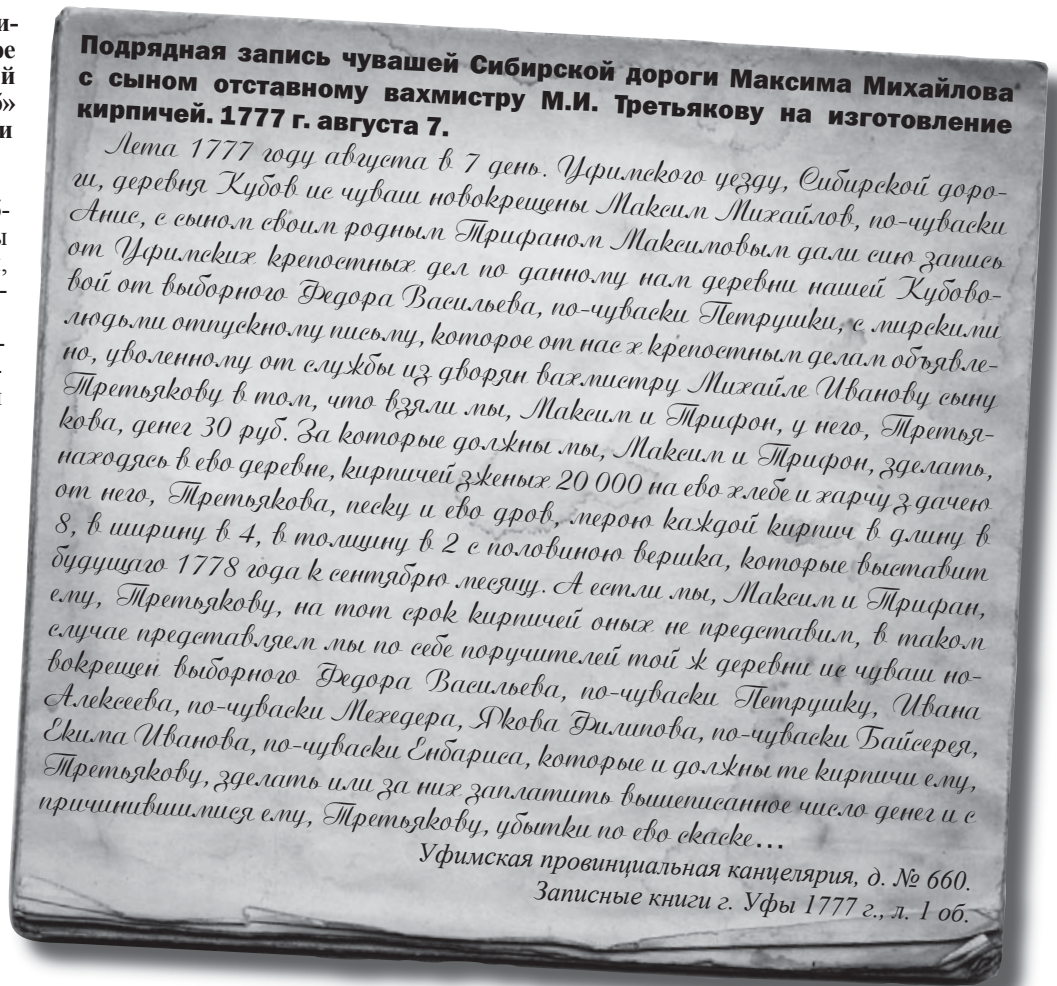 и-
ре
й
б»
и
б-
ы
,
-
-
Подрядная запись чувашей Сибирской дороги Максима Михайлова
с сыном отставному вахмистру М.И. Третьякову на изготовление
кирпичей. 1777 г. августа 7.
Лета 1777 году августа в 7 день. Уфимского уезду, Сибирской доро-
ги, деревня Кубов ис чуваш новокрещены Максим Михайлов, по-чуваски
Анис, с сыном своим родным Трифаном Максимовым дали сию запись
от Уфимских крепостных дел по данному нам деревни нашей Кубово-
вой от выборного Федора Васильева, по-чуваски Петрушки, с мирскими
людьми отпускному письму, которое от нас х крепостным делам объявле-
но, уволенному от службы из дворян вахмистру Михайле Иванову сыну
Третьякову в том, что взяли мы, Максим и Трифон, у него, Третья-
кова, денег 30 руб. За которые должны мы, Максим и Трифон, зделать,
находясь в ево деревне, кирпичей зженых 20 000 на ево хлебе и харчу з дачею
от него, Третьякова, песку и ево дров, мерою каждой кирпич в длину в
8, в ширину в 4, в толщину в 2 с половиною вершка, которые выставит
будущаго 1778 года к сентябрю месяцу. А естли мы, Максим и Трифан,
ему, Третьякову, на тот срок кирпичей оных не представим, в таком
случае представляем мы по себе поручителей той ж деревни ис чуваш но-
вокрещен выборного Федора Васильева, по-чуваски Петрушку, Ивана
Алексеева, по-чуваски Мехедера, Якова Филипова, по-чуваски Байсерея,
Екима Иванова, по-чуваски Енбариса, которые и должны те кирпичи ему,
Третьякову, зделать или за них заплатить вышеписанное число денег и с
причинившимися ему, Третьякову, убытки по ево скаске...
Уфимская провинциальная канцелярия, д. № 660.
Записные книги г. Уфы 1777 г., л. 1 об.